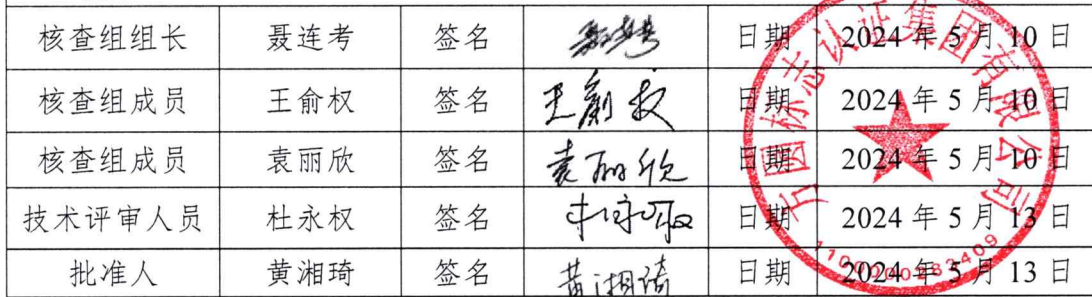 核查组组长 聂连考 签名 聂连考 日期 2024 年 5 月 10 日
核查组成员 王俞权 签名 王俞权 日期 2024 年 5 月 10 日
核查组成员 袁丽欣 签名 袁丽欣 日期 2024 年 5 月 10 日
技术评审人员 杜永权 签名 杜永权 日期 2024 年 5 月 13 日
批准人 黄湘琦 签名 黄湘琦 日期 2024 年 5 月 13 日
方圆标志认证集团有限公司
1100000283409